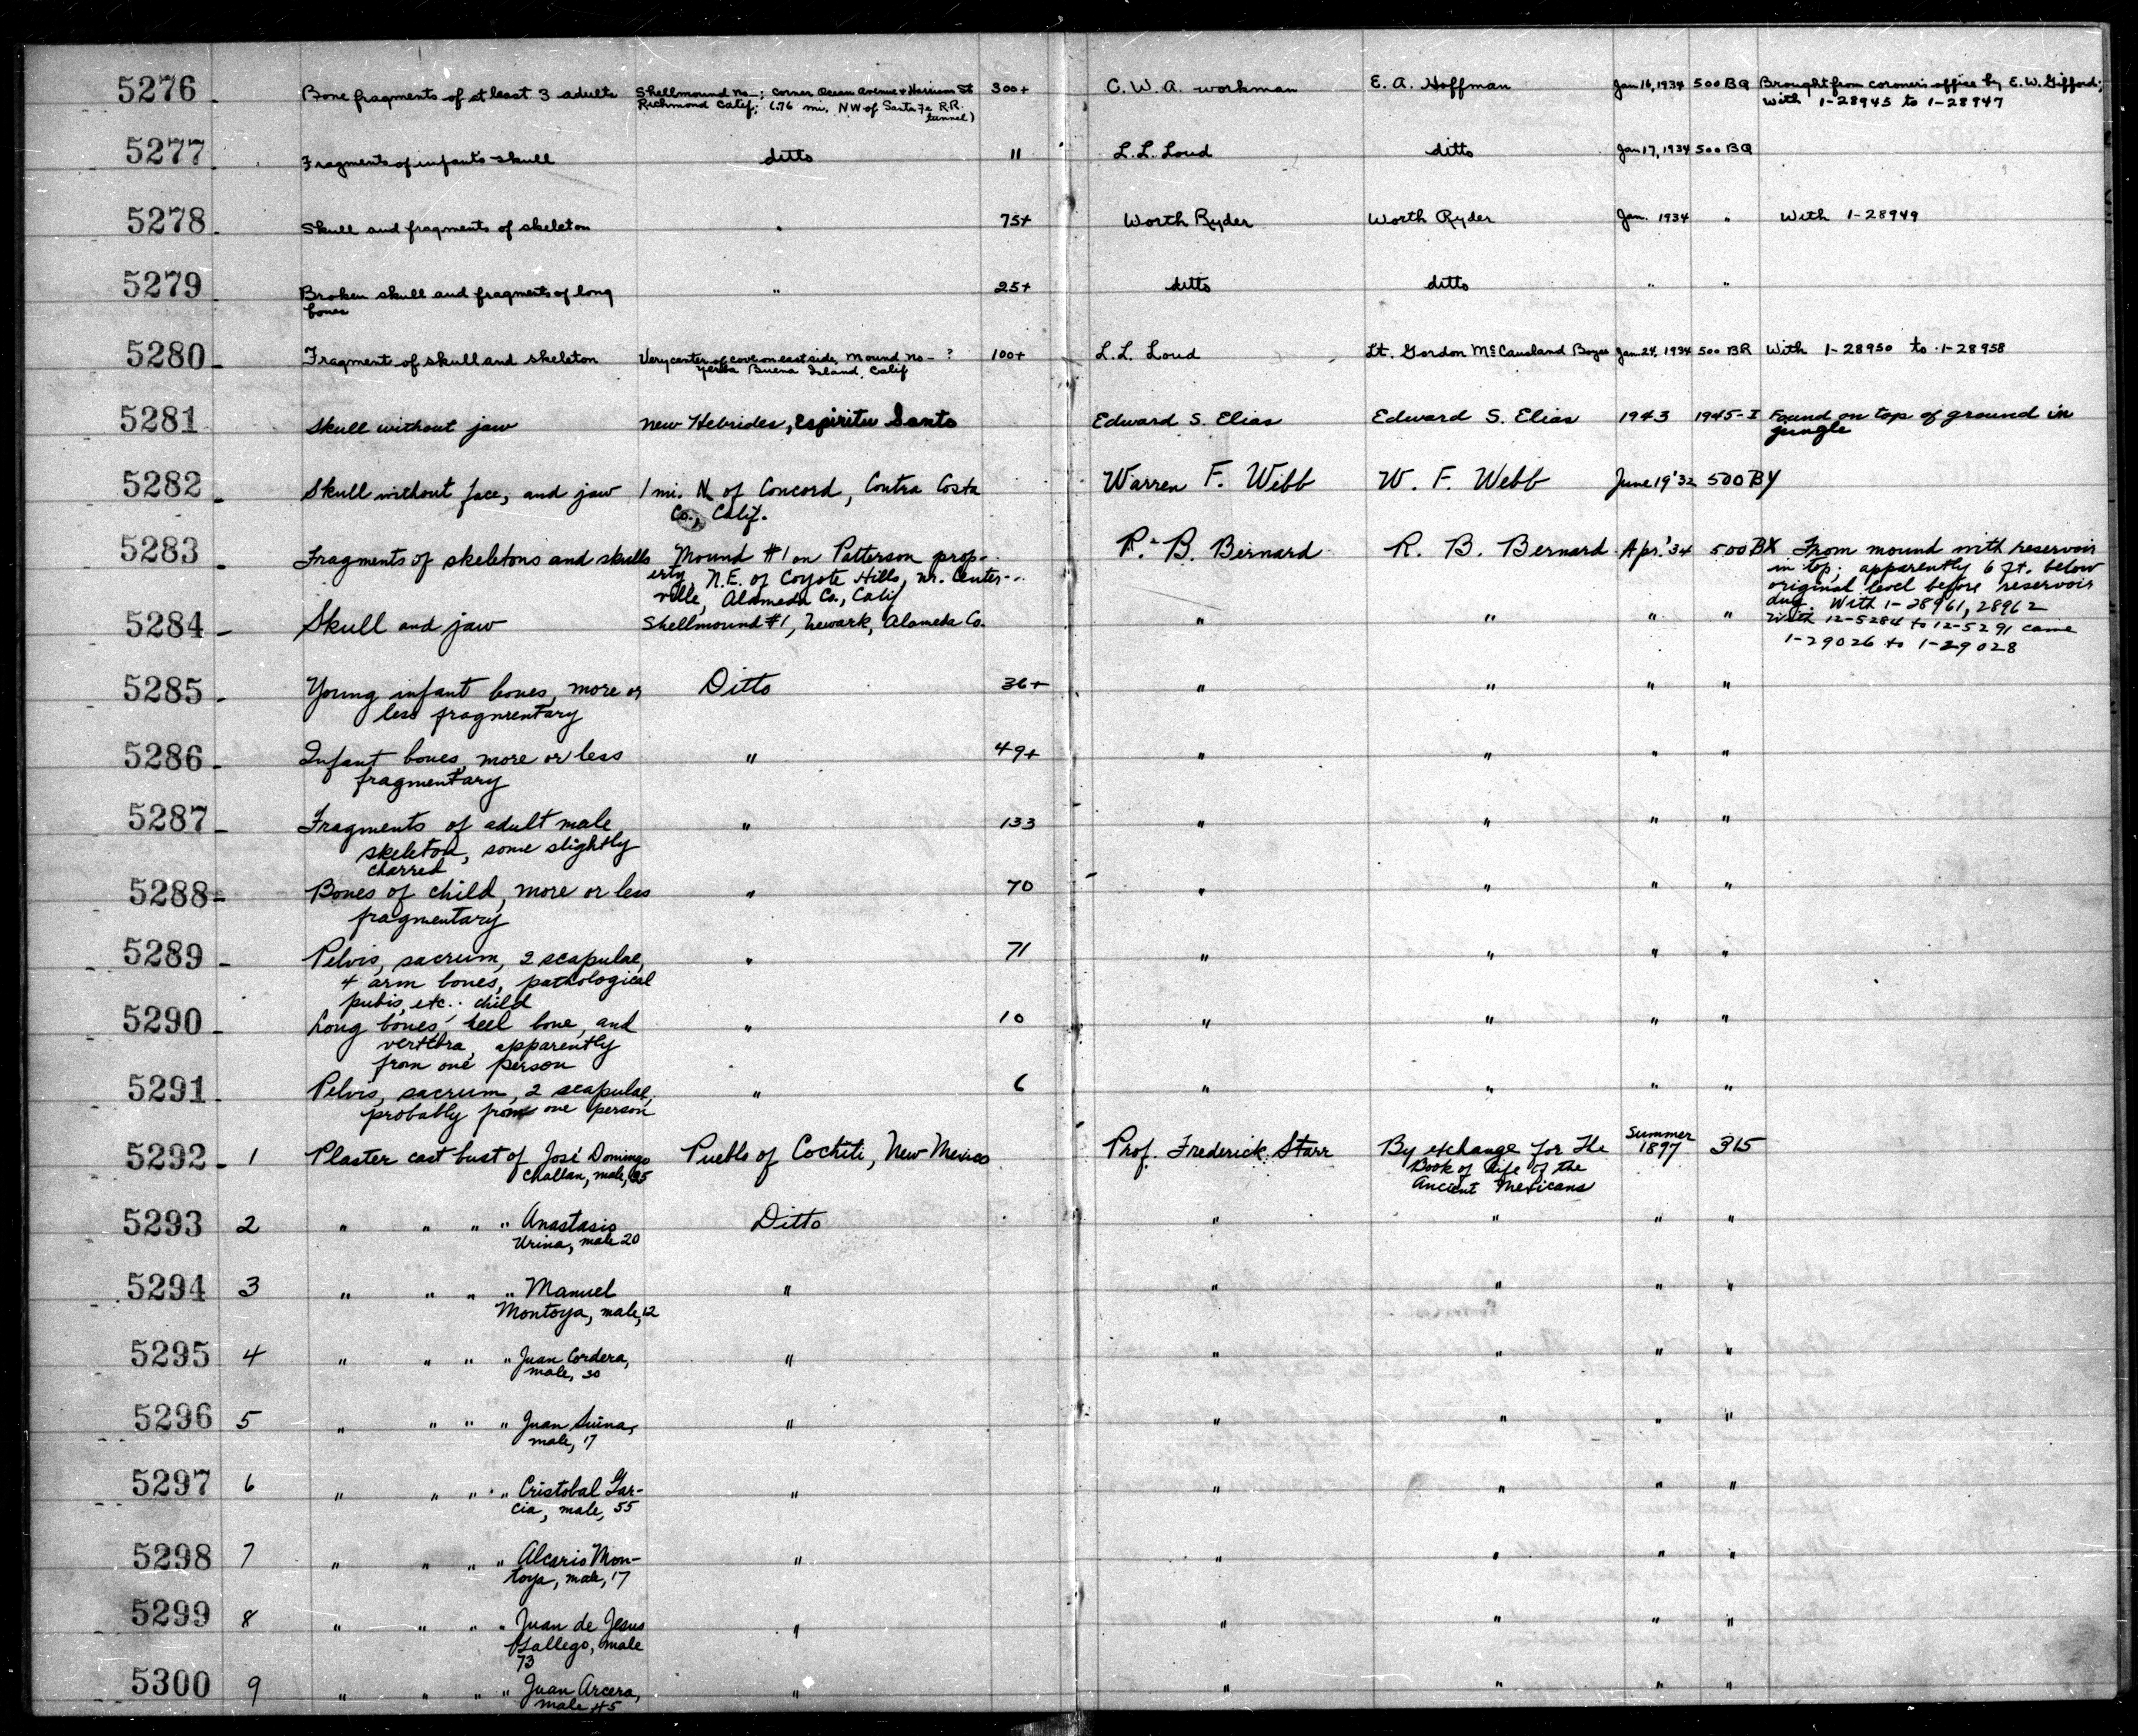 5276 Bone fragments of at least 3 adults Shellmound no—; corner Ocean Avenue & Harrison St 300+ C. W. A. workman E. A. Hoffman Jan 16, 1934 500 BQ Brought from coroner's office by E. W. Gifford;
Richmond Calif; (.76 mi. NW of Santa Fe R.R. With 1-28945 to 1-28947
tunnel)
5277 Fragments of infant's skull ditto " L. L. Loud ditto Jan 17, 1934 500 BQ
5278 Skull and fragments of skeleton " 75+ Worth Ryder Worth Ryder Jan. 1934 " With 1-28949
5279 Broken skull and fragments of long " 25+ ditto ditto " "
bones
5280 Fragment of skull and skeleton Very center of cove on east side, Mound no— ? 100+ L. L. Loud Lt. Gordon McCausland Jan 24, 1934 500 BR With 1-28950 to 1-28958
Yerba Buena Island, Calif
5281 Skull without jaw New Hebrides, Espiritu Santo Edward S. Elias Edward S. Elias 1943 1945-I Found on top of ground in
jungle
5282 Skull without face, and jaw 1 mi. N of Concord, Contra Costa Warren F. Webb W. F. Webb June 19 '32 500 BY
Co., Calif.
5283 Fragments of skeletons and skulls Mound #1 on Patterson prop- R. B. Bernard R. B. Bernard Apr. '34 500 BX From mound with reservoir
erty, N.E. of Coyote Hills, nr. Center- in top; apparently 6 ft. below
ville, Alameda Co., Calif original level before reservoir
dug. With 1-28961, 28962
5284 Skull and jaw Shellmound #1, Newark, Alameda Co. " " " " With 12-5284 to 12-5291 came
1-29026 to 1-29028
5285 Young infant bones, more or Ditto 36+ " " " "
less fragmentary
5286 Infant bones, more or less " 49+ " " " "
fragmentary
5287 Fragments of adult male " 133 " " " "
skeleton, some slightly
charred
5288 Bones of child, more or less " 70 " " " "
fragmentary
5289 Pelvis, sacrum, 2 scapulae, " 71 " " " "
4 arm bones, pathological
pubis, etc.. child
5290 Long bones, heel bone, and " 10 " " " "
vertebra, apparently
from one person
5291 Pelvis, sacrum, 2 scapulae, " 6 " " " "
probably from one person
5292 1 Plaster cast bust of José Domingo Pueblo of Cochiti, New Mexico Prof. Frederick Starr By exchange for The Summer 1897 315
Challan, male, 35 Book of Life of the
Ancient Mexicans
5293 2 " " " " Anastasio Ditto " " " "
Urina, male 20
5294 3 " " " " Manuel " " " " "
Montoya, male, 12
5295 4 " " " " Juan Cordera, " " " " "
male, 30
5296 5 " " " " Juan Suina, " " " " "
male, 17
5297 6 " " " " Cristobal Gar- " " " " "
cia, male, 55
5298 7 " " " " Alcario Mon- " " " " "
toya, male, 17
5299 8 " " " " Juan de Jesus " " " " "
Gallego, male
73
5300 9 " " " " Juan Arcera, " " " " "
male 45